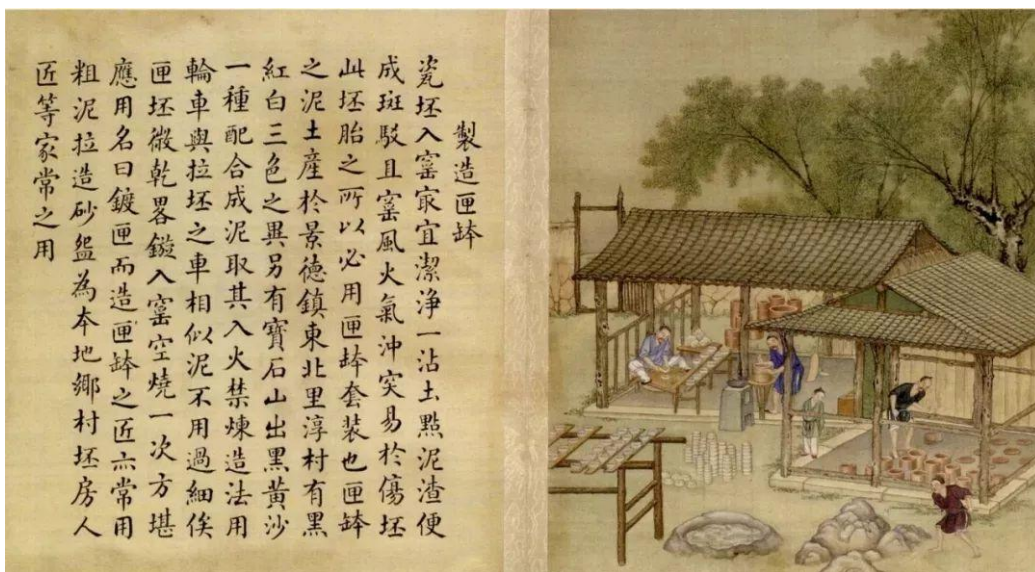 製造匣鉢
瓷坯入窰㝡宜潔净一沾土點泥渣便
成斑駁且窰風火氣沖突易於傷坯
此坯胎之所以必用匣鉢套裝也匣鉢
之泥土產於景德鎮東北里淳村有黑
紅白三色之異另有寶石山出黑黃沙
一種配合成泥取其入火禁煉造法用
輪車與拉坯之車相似泥不用過細俟
匣坯微乾畧鏇入窰空燒一次方堪
應用名曰鍍匣而造匣鉢之匠亦常用
粗泥拉造砂盌為本地鄉村坯房人
匠等家常之用